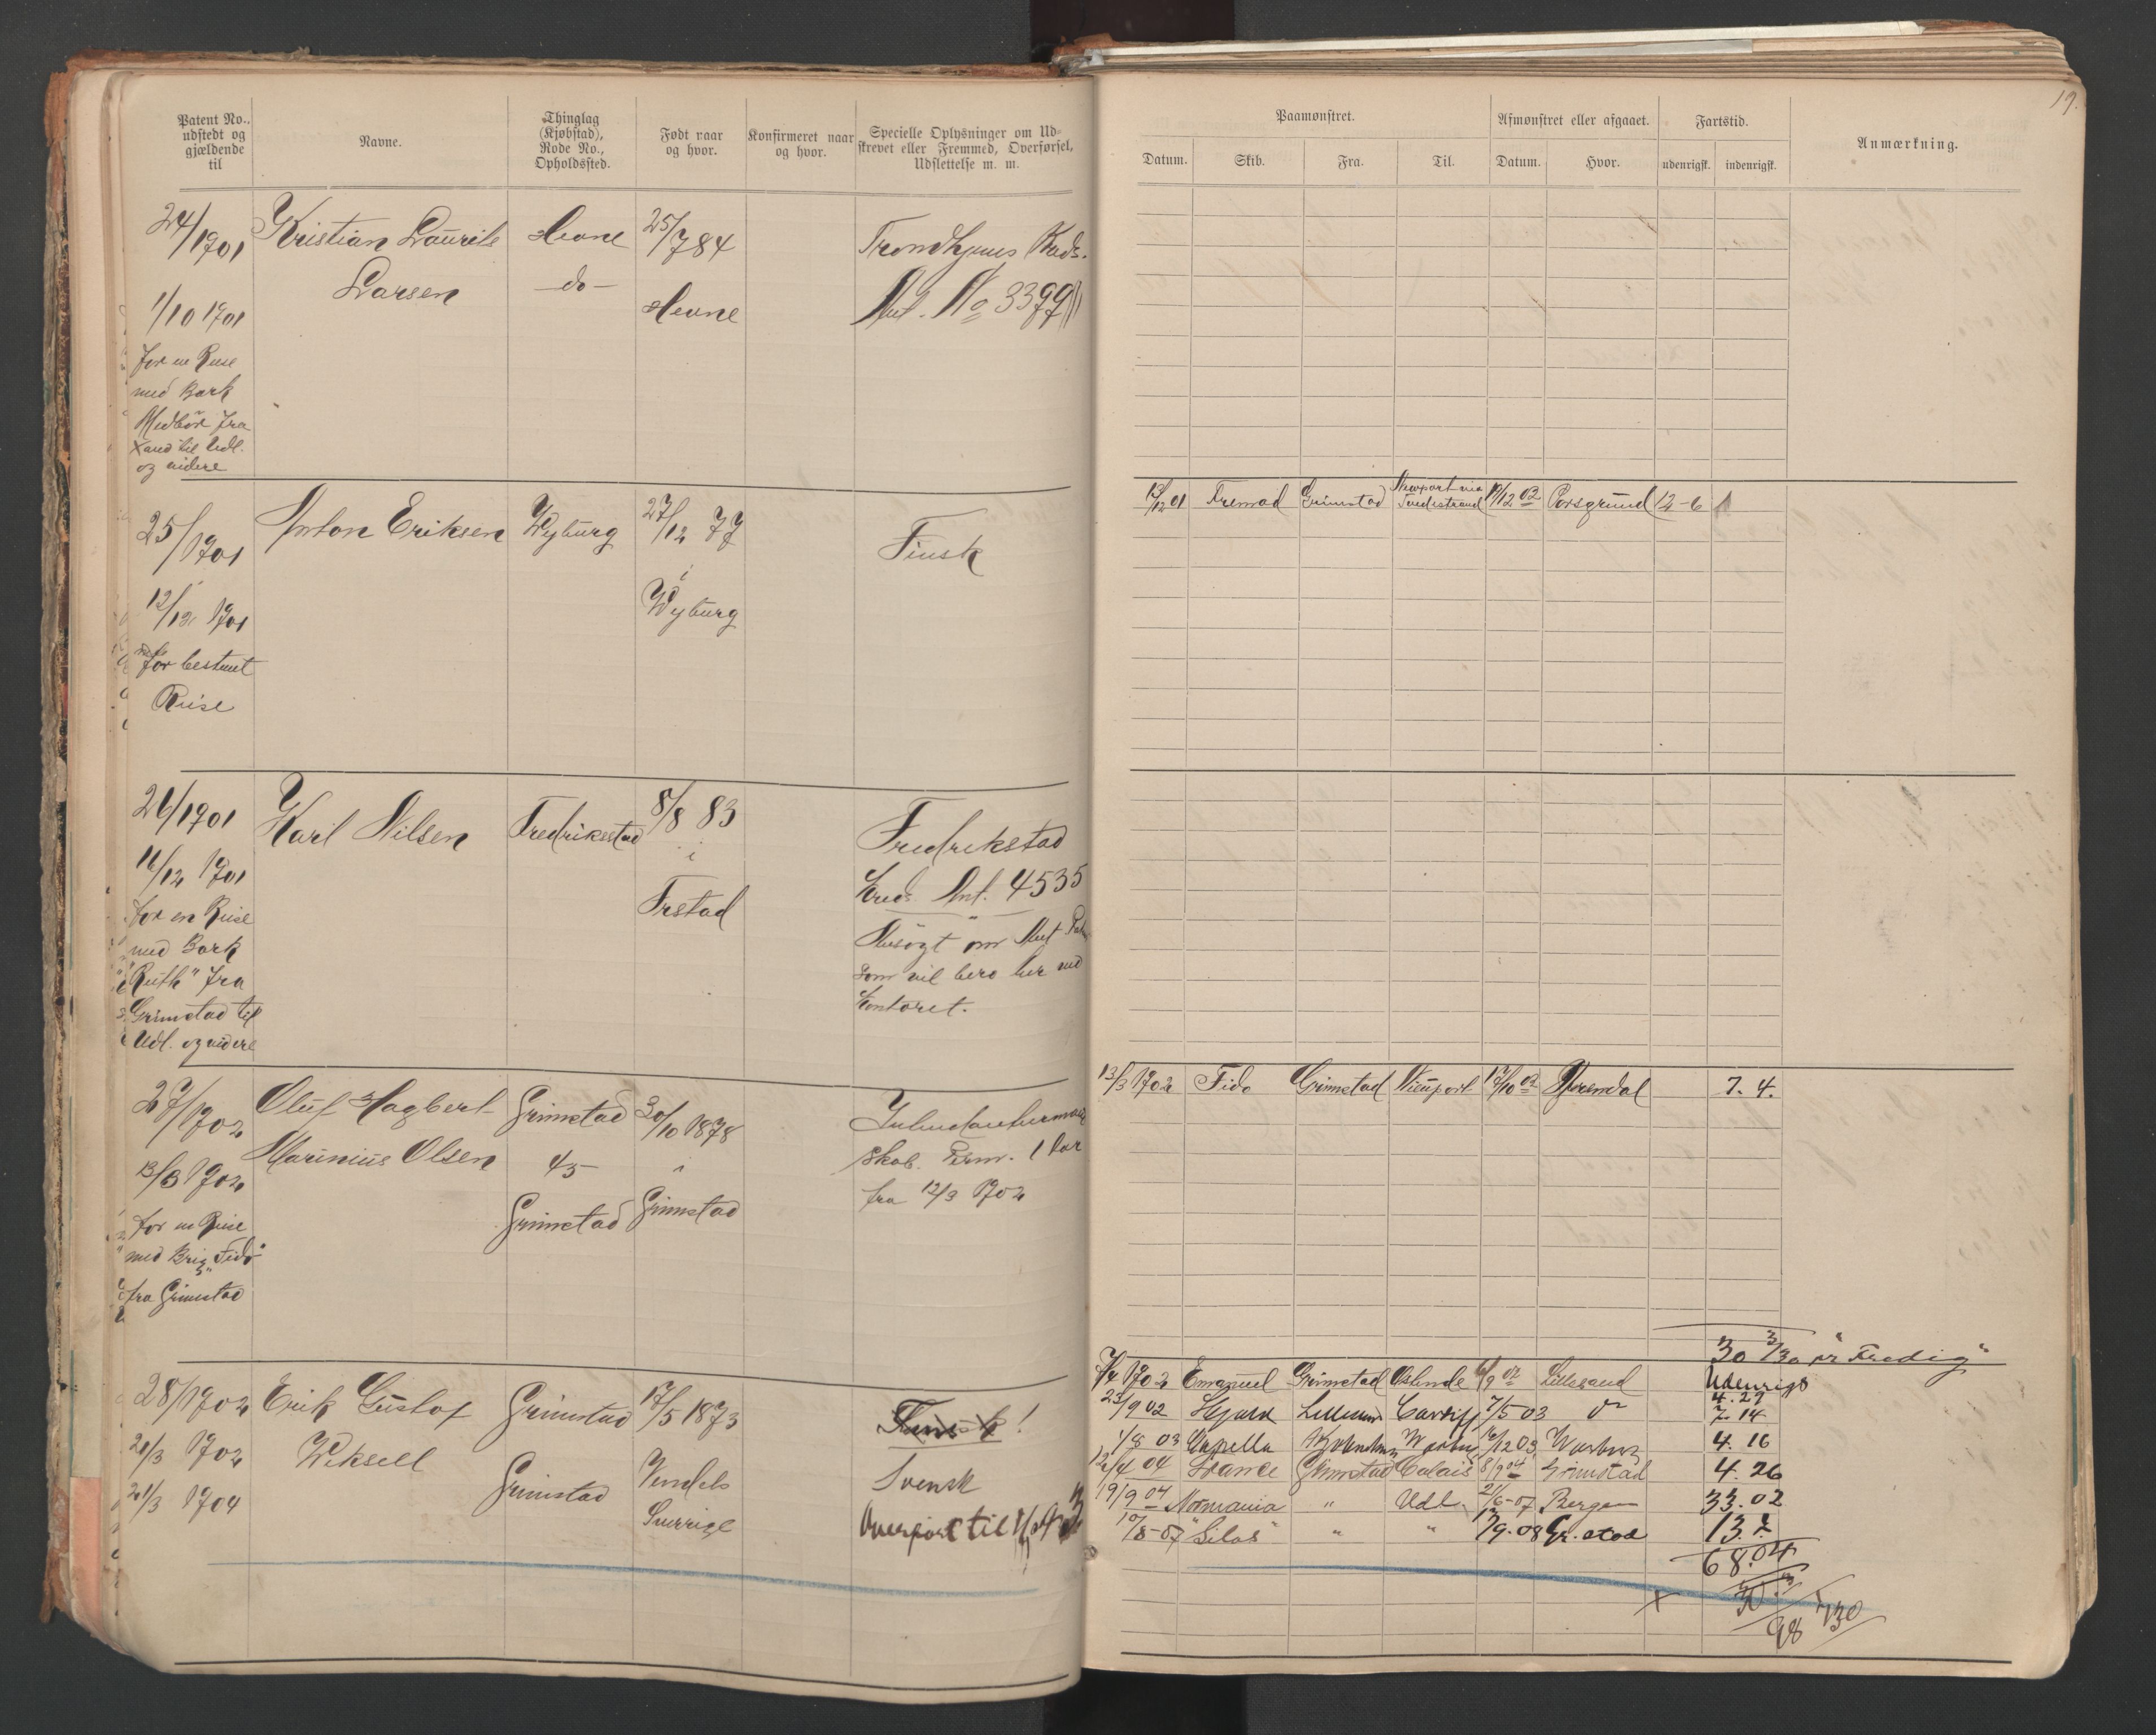 19.
Patent No.,
udstedt og
gjældende
til
Navne.
Thinglag
(Kjøbstad),
Rode No.,
Opholdssted.
Født naar
og hvor.
Konfirmeret naar
og hvor.
Specielle Oplysninger om Ud-
skrevet eller Fremmed, Overførsel,
Udslettelse m. m.
Paamønstret.
Datum.
Skib.
Fra.
Til.
Afmønstret eller afgaaet.
Datum.
Hvor.
Fartstid.
udenrigsk.
indenrigsk.
Anmærkning.
24/1901
1/10 1901
for en Reise
med Bark
Medbør fra
Xand til Udl.
og videre
Kristian Laurits
Larsen
Hevne
-do-
25/7 84
Hevne
Trondhjems
No 3399
25/1901
12/12 1901
for bestemt
Reise
Anton Eriksen
Wyburg
27/12 77
i
Wyburg
Finsk
13/12 01 Fremad Grimstad Newport via
Tvedestrand
19/12 02 Porsgrund 12-6
26/1901
16/12 1901
for en Reise
med Bark
"Ruth" fra
Grimstad til
Udl. og videre
Karl Nilsen
Fredriksstad
8/8 83
i
Frstad
Fredrikstad
Kreds Ant. 4535
Ansøgt om Mut
som vil bero her ved
Kontoret.
27/1902
13/3 1902
for en Reise
med Brig "Fido"
fra Grimstad
Oluf Hagbert
Marinius Olsen
Grimstad
45
Grimstad
30/10 1878
i
Grimstad
skab. Perm. 1 Aar
fra 12/3 1902
13/3 1902 Fido Grimstad Nieuport 17/10 02 Arendal 7. 4.
28/1902
21/3 1902
21/3 1904
Erik Gustof
Wiksell
Grimstad
Grimstad
17/5 1873
Vendels
Sverrige
Finsk !
Svensk
Overført til
30 3/30 pr "Fredig"
7/4 1902 Emanuel Grimstad Ostende 6/9 02 Lillesand Udenrigs
4. 29
23/9 02 Hjørd Cardiff 7/5 03 do 7. 14
1/8 03 Capella 16/12 03 Warburg 4. 16
12/4 04 France Grimstad Calais 8/9 04 Grimstad 4. 26
19/9 04 Normania " Udl. 21/6-07 Bergen 33. 02
10/8-07 "Silas" " " 17/9-08 Gr.stad 13. 7
68. 04
30. 3
98 7/30